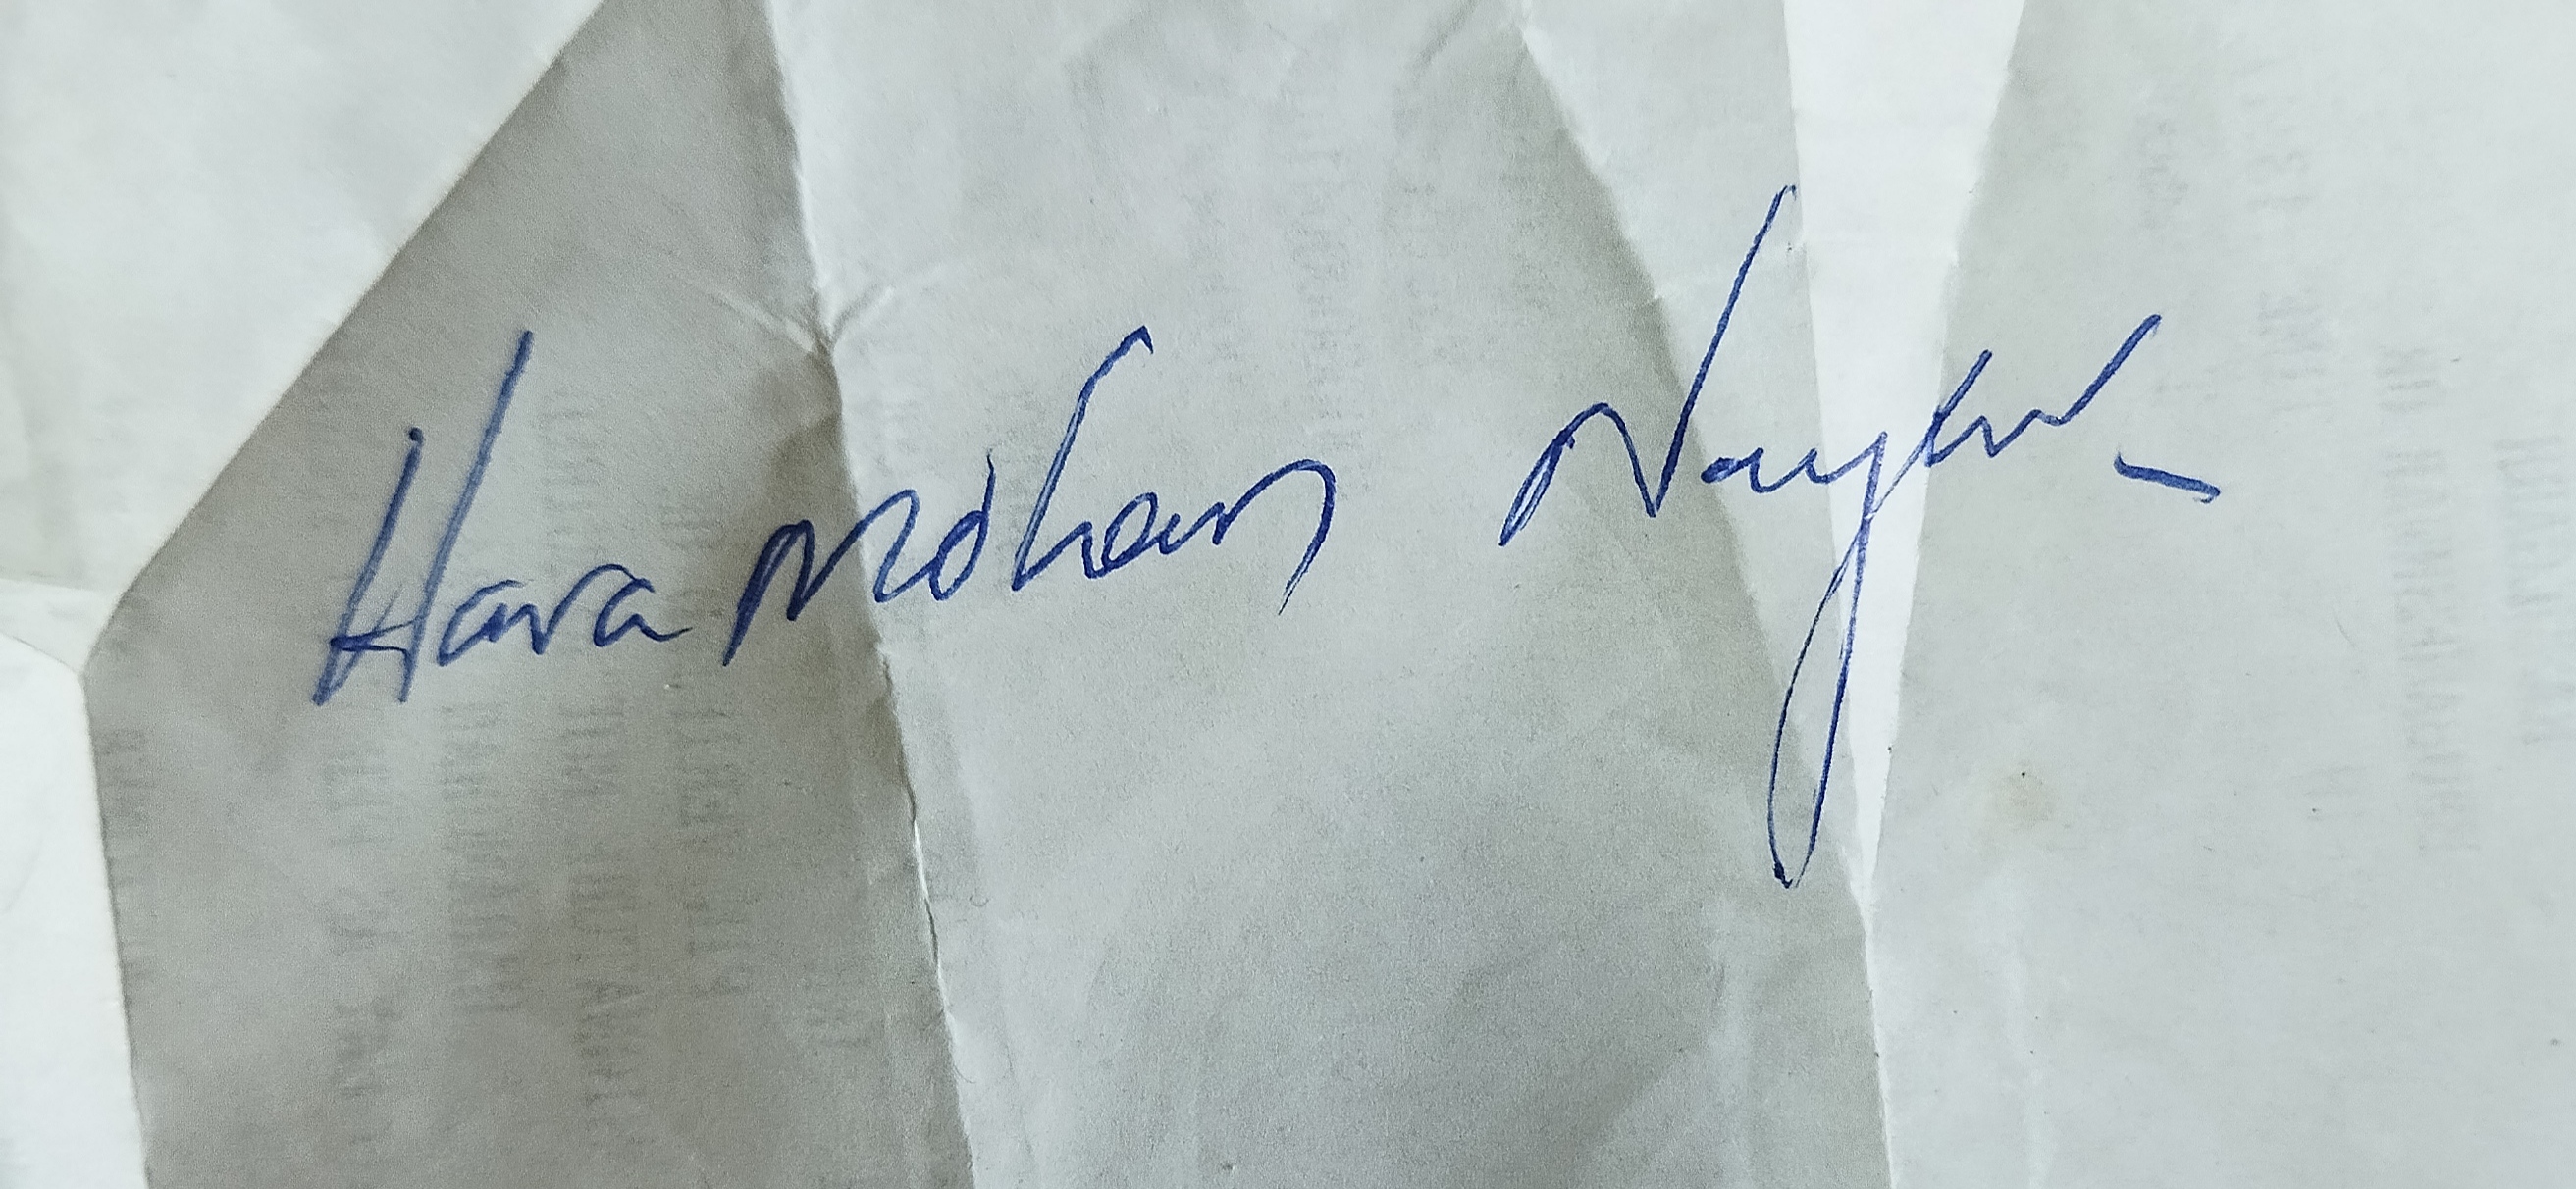 Hara Mohan Nayak